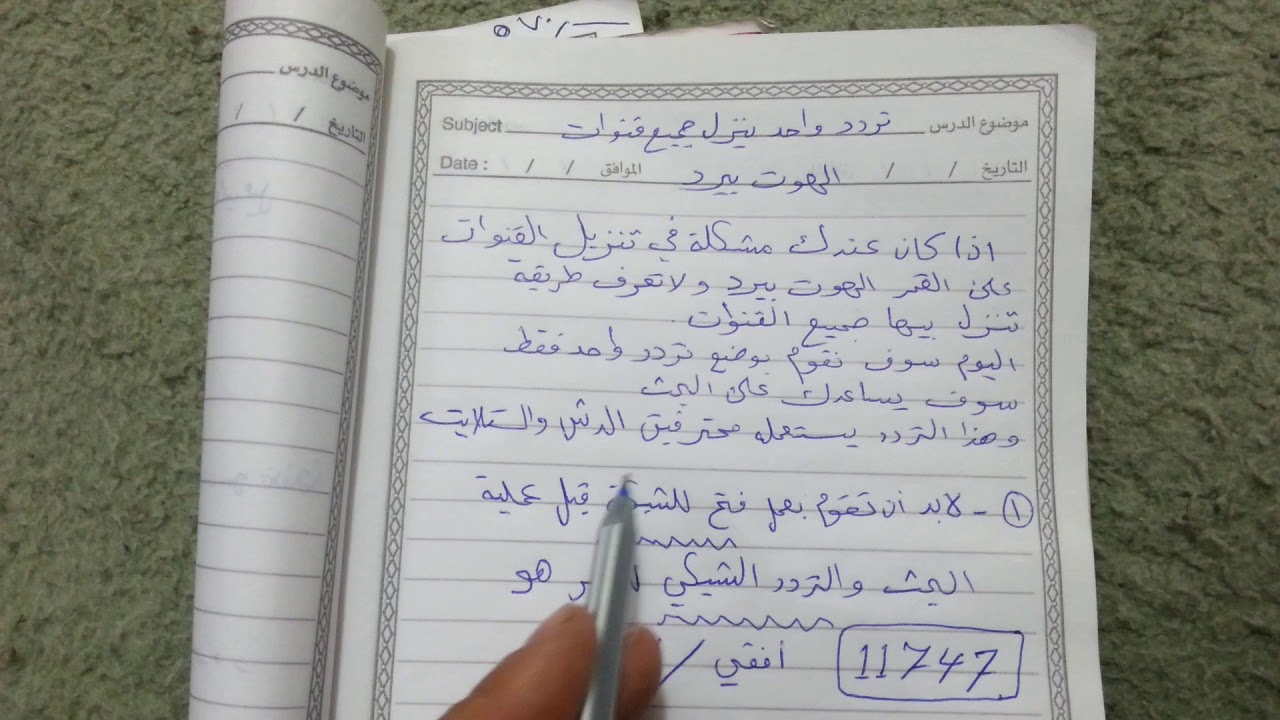 موضوع الدرس تردد واحد ينزل جميع قنوات Subject
التاريخ / / الموافق / / Date :
الهوت بيرد
اذا كان عندك مشكلة في تنزيل القنوات
على القمر الهوت بيرد و لا تعرف طريقه
تنزل بيها جميع القنوات .
اليوم سوف نقوم بوضع تردد واحد فقط
سوف يساعدك على البحث
وهذا التردد يستعمله محترفين الدش والستلايت
١ - لابد أن تقوم بعمل فتح للشبكة قبل عملية
البحث والتردد الشبكي هو
11747 أفقي /
موضوع الدرس
التاريخ / /